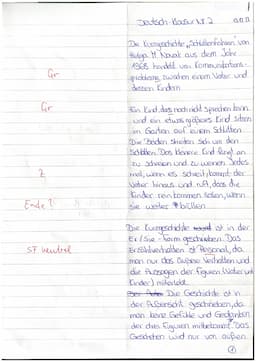 Deutsch-Klausur Nr 2
Die Kurzgeschichte „Schlittenfahren" von
Helga M. Novak aus dem Jahr
1968 handelt von Kommunikations-
problemen zwischen einem Vater und
dessen Kindern
Gr
Gr
Ein Kind, das noch nicht sprechen kann
und ein etwas größeres Kind sitzen
im Garten auf einem Schlitten
Die Beiden streiten sich um den
Schlitten. Das kleinere Kind fängt an
zu schreien und zu weinen. Jedes
Z
mal, wenn es schreit, kommt der
Vater hinaus und ruft, dass die
Ende?
Kinder reinkommen sollen, wenn
sie weiter brüllen
Die Kurzgeschichte ist in der
Er/Sie-Form geschrieben. Das
ST neutral
Erzählverhalten ist Personal, da
man nur das äußere Verhalten und
die Aussagen der Figuren (Vater und
Kinder) miterlebt.
Die Geschichte ist in
der Außensicht geschrieben, da
man keine Gefühle und Gedanken
der drei Figuren mitbekommt. Das
Geschehen wird nur von außen
1